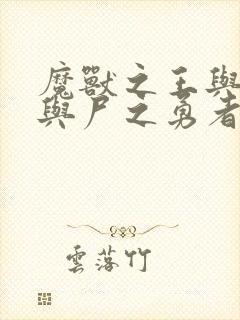 魔獸之王與
與尸之勇者
雲落竹